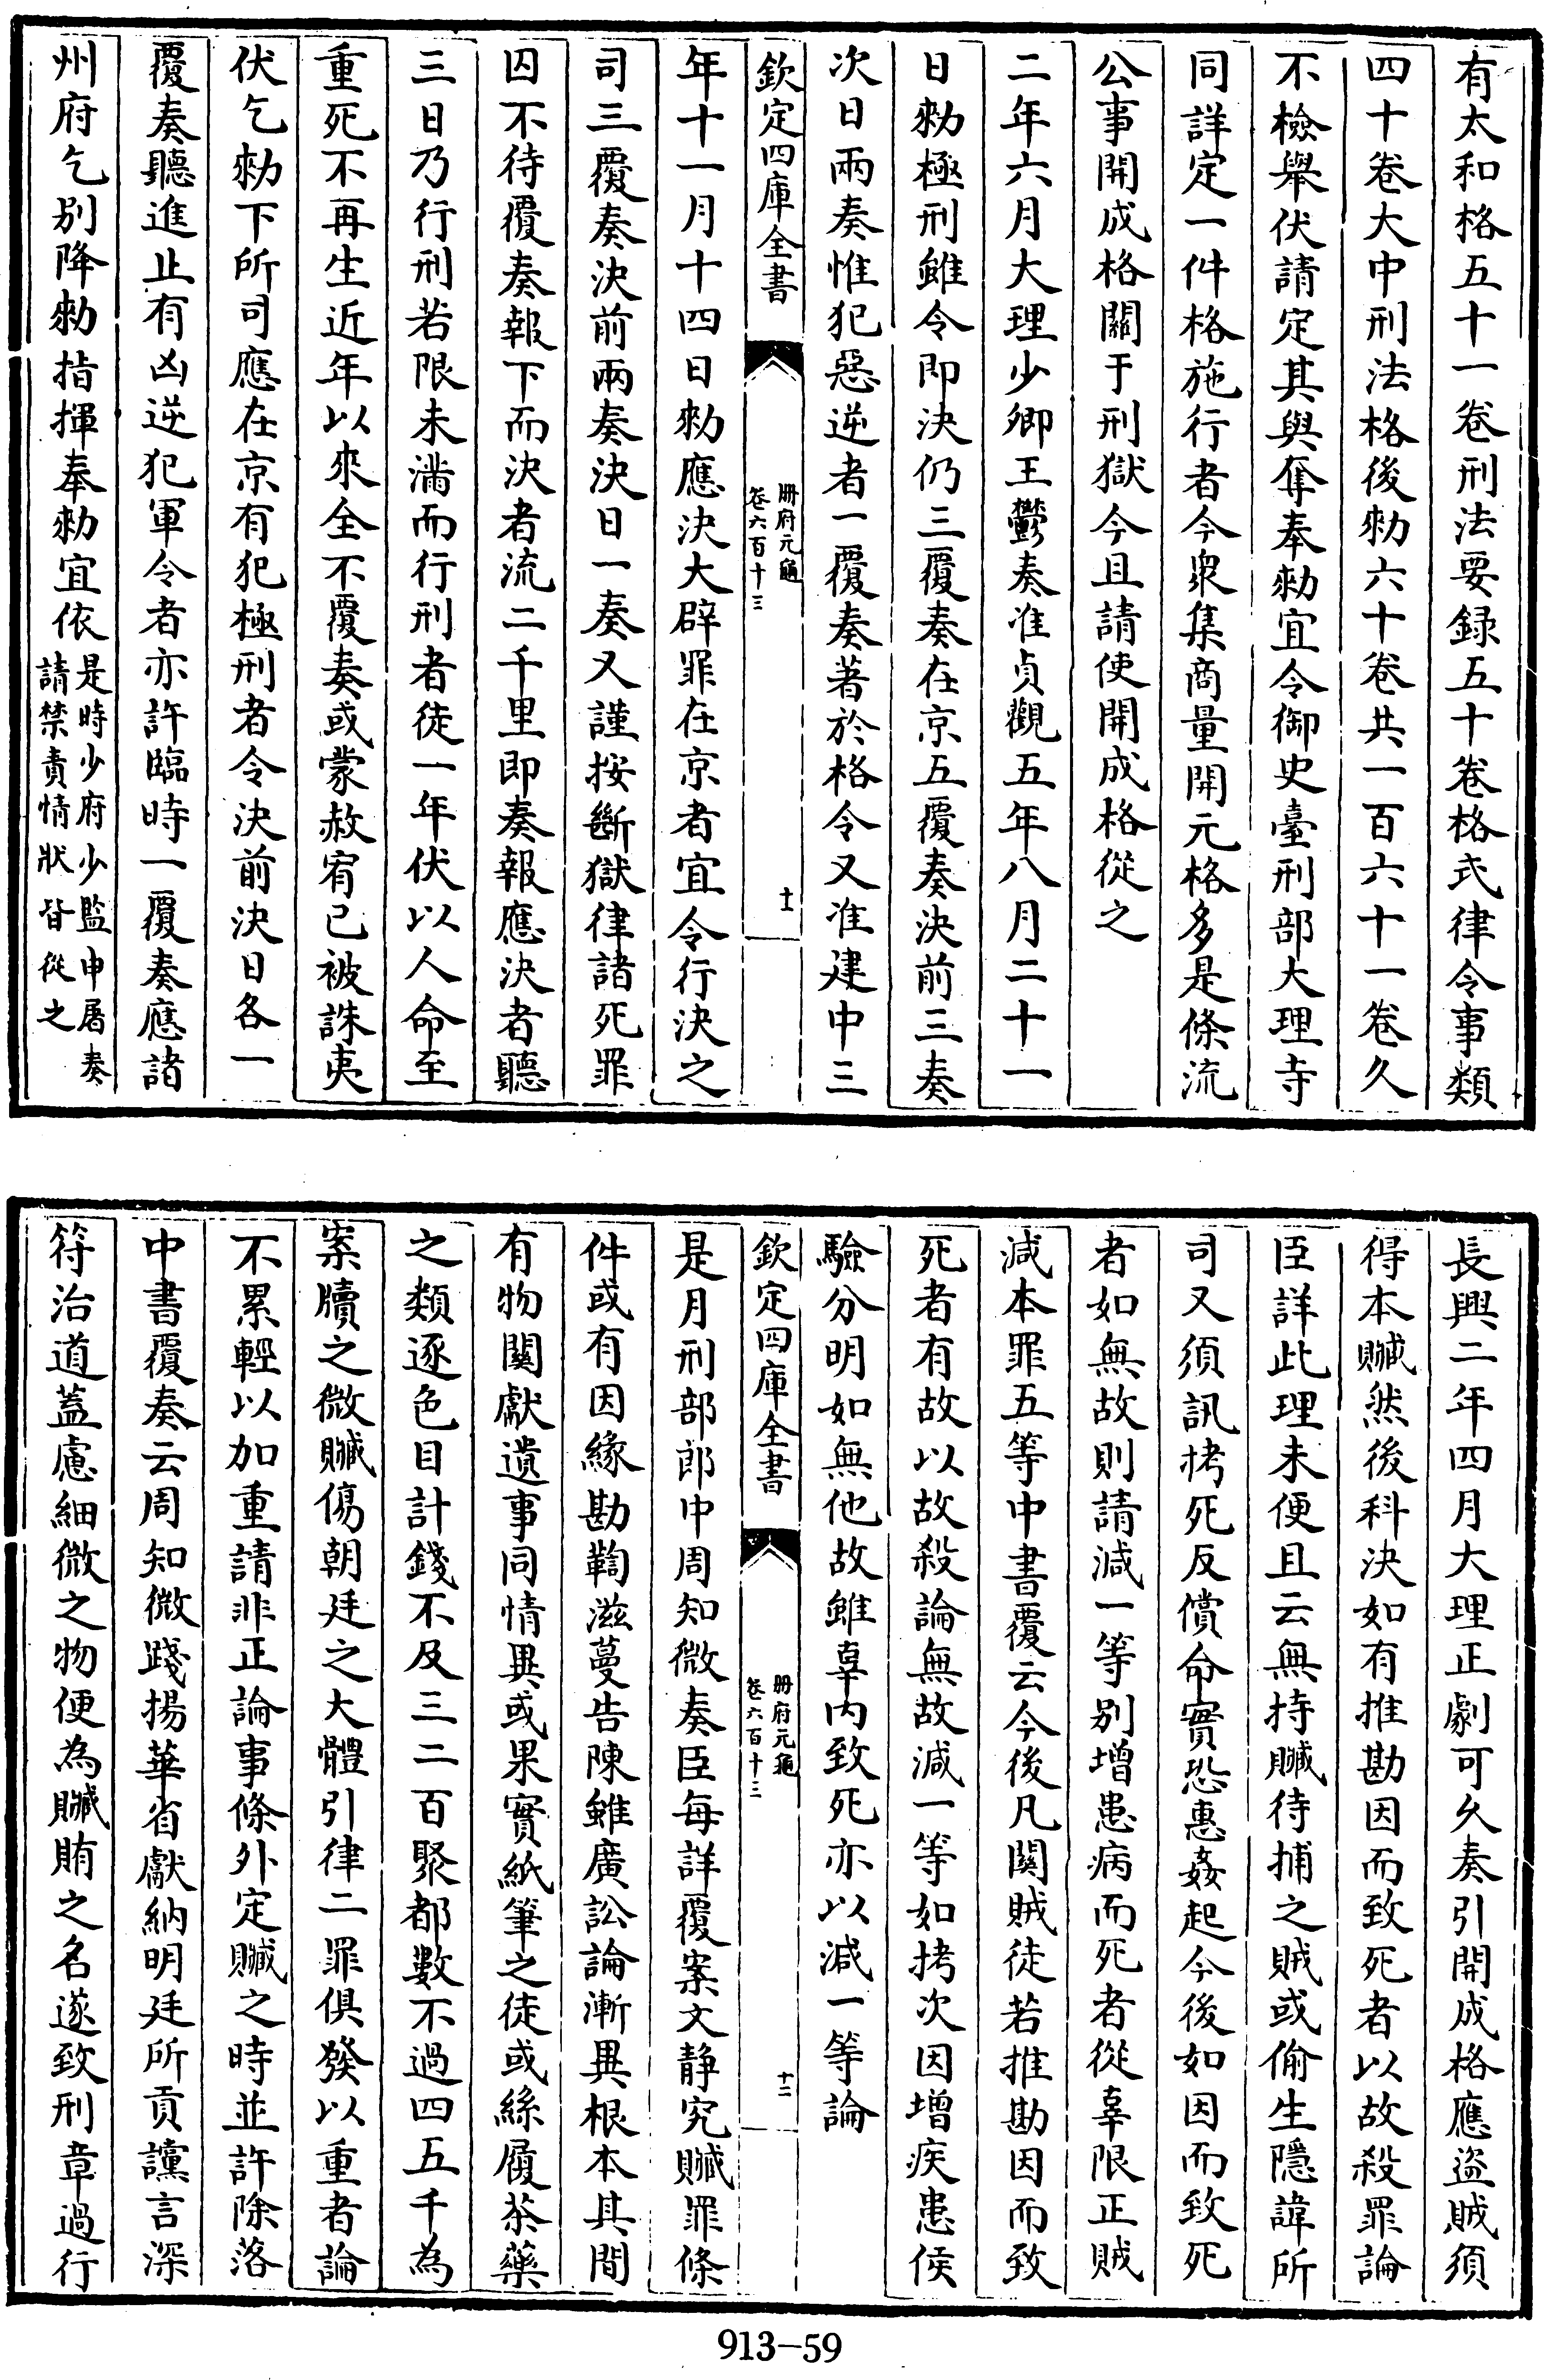 有太和格五十一卷刑法要録五十卷格式律令事類
四十卷大中刑法格後勑六十卷共一百六十一卷久
不檢舉伏請定其與奪奉勑宜令御史臺刑部大理寺
同詳定一件格施行者今衆集商量開元格多是條流
公事開成格關于刑獄今且請使開成格從之
二年六月大理少卿王鬱奏准貞觀五年八月二十一
日勑極刑雖令即決仍三覆奏在京五覆奏決前三奏
次日兩奏惟犯惡逆者一覆奏著於格令又准建中三
欽定四庫全書
册府元龜
卷六百十三
十一
年十一月十四日勑應決大辟罪在京者宜令行決之
司三覆奏決前兩奏決日一奏又謹按斷獄律諸死罪
囚不待覆奏報下而決者流二千里即奏報應決者聽
三日乃行刑若限未滿而行刑者徒一年伏以人命至
重死不再生近年以來全不覆奏或蒙赦宥已被誅夷
伏乞勑下所司應在京有犯極刑者令決前決日各一
覆奏聽進止有凶逆犯軍令者亦許臨時一覆奏應諸
州府乞别降勑指揮奉勑宜依是時少府少監申屠奏
請禁責情狀皆從之
長興二年四月大理正劇可久奏引開成格應盗賊須
得本贓然後科決如有推勘因而致死者以故殺罪論
臣詳此理未便且云無持贓待捕之賊或偷生隱諱所
司又須訊拷死反償命實恐惠姦起今後如因而致死
者如無故則請減一等别增患病而死者從辜限正賊
減本罪五等中書覆云今後凡関賊徒若推勘因而致
死者有故以故殺論無故減一等如拷次因增疾患候
驗分明如無他故雖辜内致死亦以減一等論
欽定四庫全書
册府元龜
卷六百十三
十二
是月刑部郎中周知微奏臣每詳覆案文静究贓罪條
件或有因緣勘鞫滋蔓告陳雖廣訟論漸異根本其間
有物關獻遺事同情異或果實紙筆之徒或絲履茶藥
之類逐色目計錢不及三二百聚都數不過四五千為
案牘之微贓傷朝廷之大體引律二罪俱發以重者論
不累輕以加重請非正論事條外定贓之時並許除落
中書覆奏云周知微踐揚華省獻納明廷所貢讜言深
符治道蓋慮細微之物便為贓賄之名遂致刑章過行
913－59